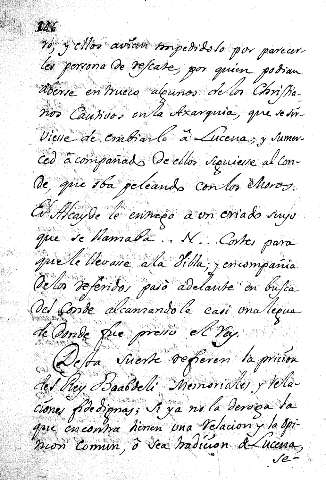 ro, y ellos avian impedidolo por parecer-
les persona de rescate, por quien podian
darse en trueco algunos de los Christia-
nos Cautivos en la Axarquia, que se sir-
viesse de embiarlo à Lucena, y su mer-
ced acompañado de ellos siguiesse al Con-
de, que iba peleando con los Moros.
El Alcayde le entregò à un criado suyo
que se llamaba .. N.. Cortes para
que le llevasse a la Villa, y en compañia
de los referidos pasò adelante en busca
del Conde alcanzandole casi una legua
de donde fue presso el Rey.
Desta suerte refieren la prision
del Rey Baabdeli Memoriales, y rela-
ciones fidedignas; Y ya no la deroga la
que encontra tienen una relacion y la opi-
nion comun, ò sea tradicion de Lucena,
se-